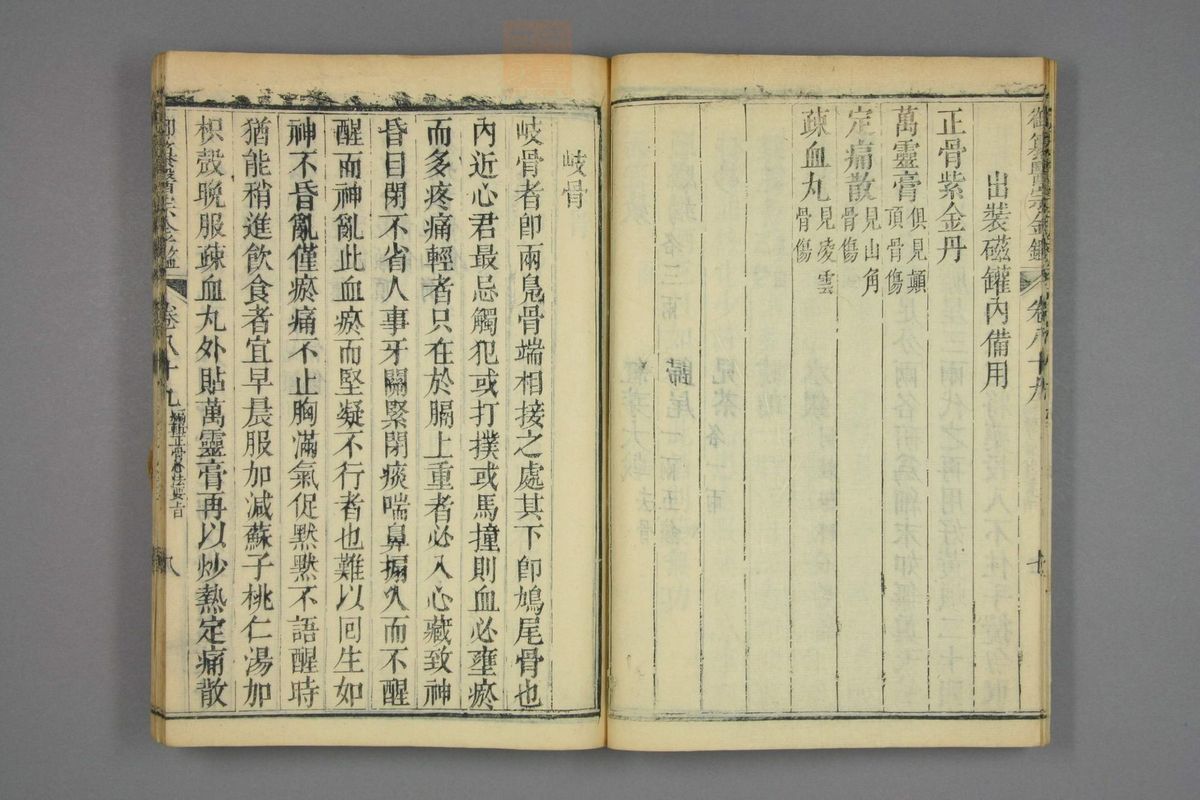 御纂醫宗金鑑 卷八十九
出裝磁罐內備用
正骨紫金丹
萬靈膏 俱見顛頂骨傷
定痛散 見山角骨傷
疎血丸 見凌雲骨傷
岐骨
岐骨者卽兩鳧骨端相接之處其下卽鳩尾骨也
內近心君最忌觸犯或打撲或馬撞則血必壅瘀
而多疼痛輕者只在於膈上重者必入心藏致神
昏目閉不省人事牙關緊閉痰喘鼻搧久而不醒
醒而神亂此血瘀而堅凝不行者也難以回生如
神不昏亂僅瘀痛不止胸滿氣促默默不語醒時
猶能稍進飲食者宜早晨服加減蘇子桃仁湯加
枳殼晚服疎血丸外貼萬靈膏再以炒熱定痛散
御纂醫宗金鑑 卷八十九 編輯正骨心法要旨 八